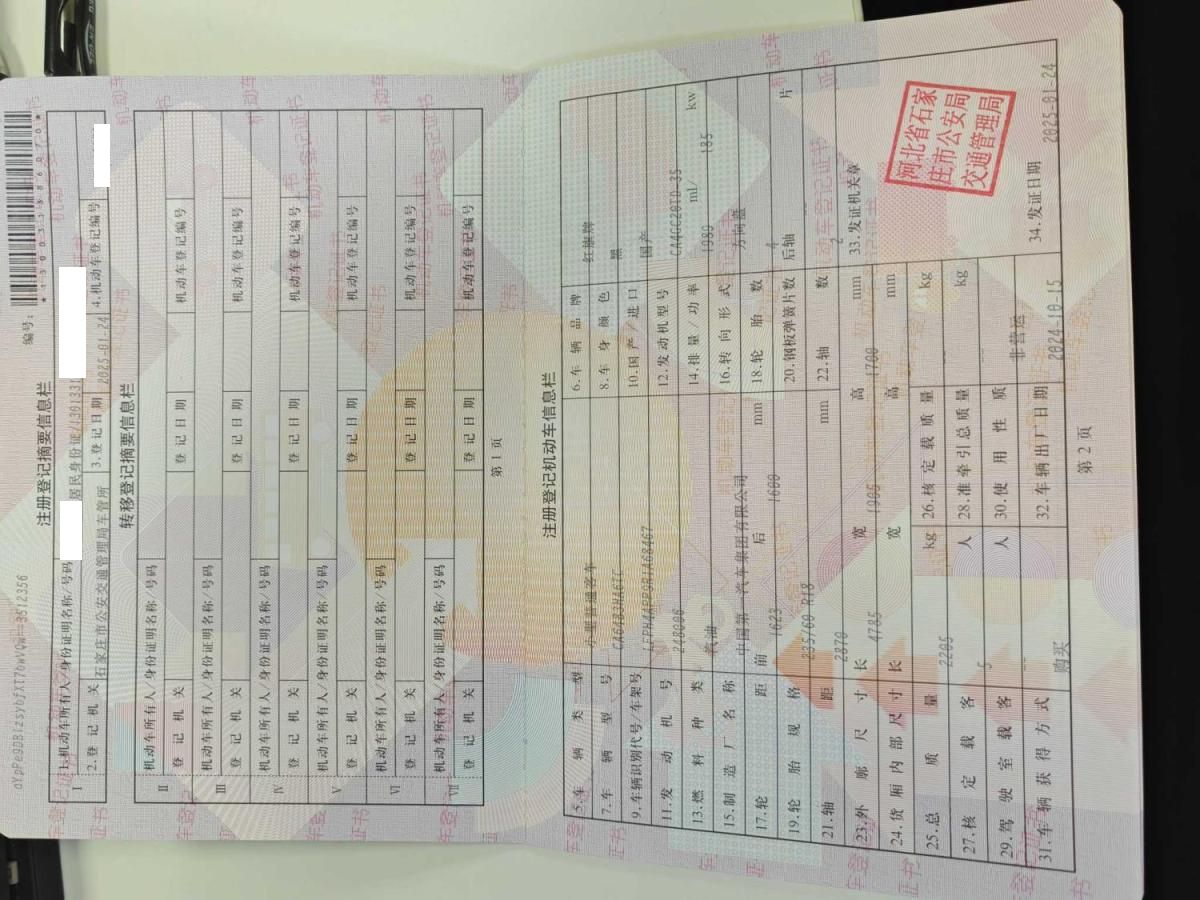 dYpPe9DBizsybjXT7bwVQw==3512356
编号：
注册登记摘要信息栏
Ⅰ 1.机动车所有人/身份证明名称/号码 居民身份证/1301331
2.登记机关 石家庄市公安交通管理局车管所 3.登记日期 2025-01-24 4.机动车登记编号
转移登记摘要信息栏
Ⅱ 机动车所有人/身份证明名称/号码
登记机关 登记日期 机动车登记编号
Ⅲ 机动车所有人/身份证明名称/号码
登记机关 登记日期 机动车登记编号
Ⅳ 机动车所有人/身份证明名称/号码
登记机关 登记日期 机动车登记编号
Ⅴ 机动车所有人/身份证明名称/号码
登记机关 登记日期 机动车登记编号
Ⅵ 机动车所有人/身份证明名称/号码
登记机关 登记日期 机动车登记编号
Ⅶ 机动车所有人/身份证明名称/号码
登记机关 登记日期 机动车登记编号
第 1 页
注册登记机动车信息栏
5.车辆类型 小型普通客车 6.车辆品牌 红旗牌
7.车辆型号 CA6483HA6TC 8.车身颜色 黑
9.车辆识别代号/车架号 LFPH4APP9R1A68467 10.国产/进口 国产
11.发动机号 248006 12.发动机型号 CA4GC20TD-35
13.燃料种类 汽油 14.排量/功率 1989 ml/ 185 kw
15.制造厂名称 中国第一汽车集团有限公司 16.转向形式 方向盘
17.轮距 前 1623 后 1600 mm 18.轮胎数 4
19.轮胎规格 235/60 R18 20.钢板弹簧片数 后轴 片
21.轴距 2870 mm 22.轴数 2
23.外廓尺寸 长 4785 宽 1905 高 1700 mm
33.发证机关章
河北省石家
庄市公安局
交通管理局
24.货厢内部尺寸 长 宽 高 mm
25.总质量 2205 kg 26.核定载质量 kg
27.核定载客 5 人 28.准牵引总质量 kg
29.驾驶室载客 -- 人 30.使用性质 非营运
31.车辆获得方式 购买 32.车辆出厂日期 2024-10-15 34.发证日期 2025-01-24
第 2 页